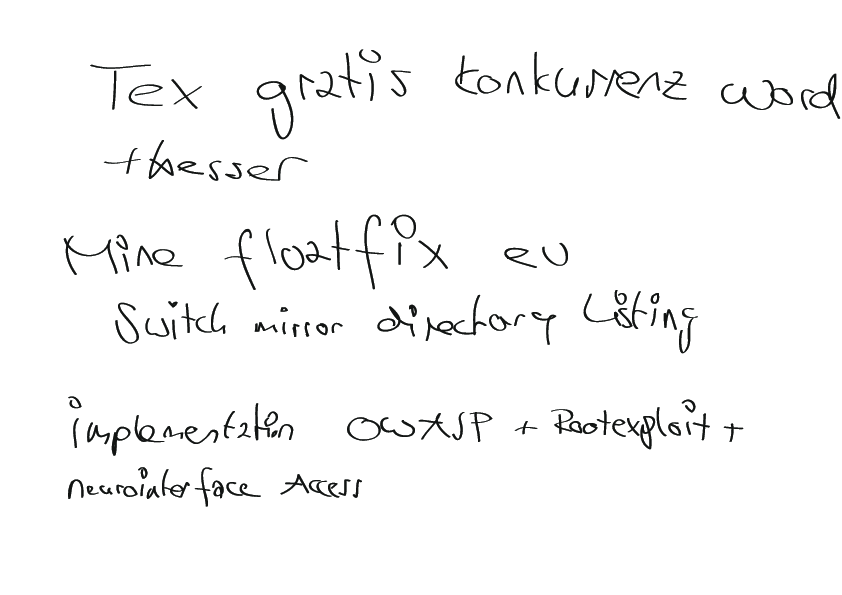 Tex gratis konkurrenz word
+besser
Mine floatfix eu
Switch mirror directory Listing
implementation OWASP + Rootexploit +
neurointerface Access